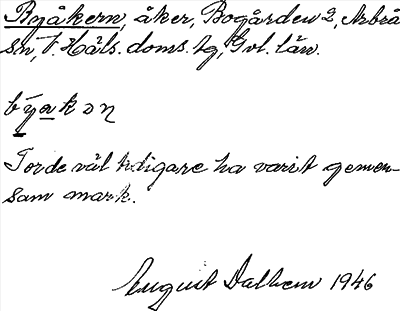 Byåkern, åker, Bogården 2, Arbrå
sn, V. Häls. doms. tg, Gvl. län.
býakən
Torde väl tidigare ha varit gemen-
sam mark.
August Dalhem 1946